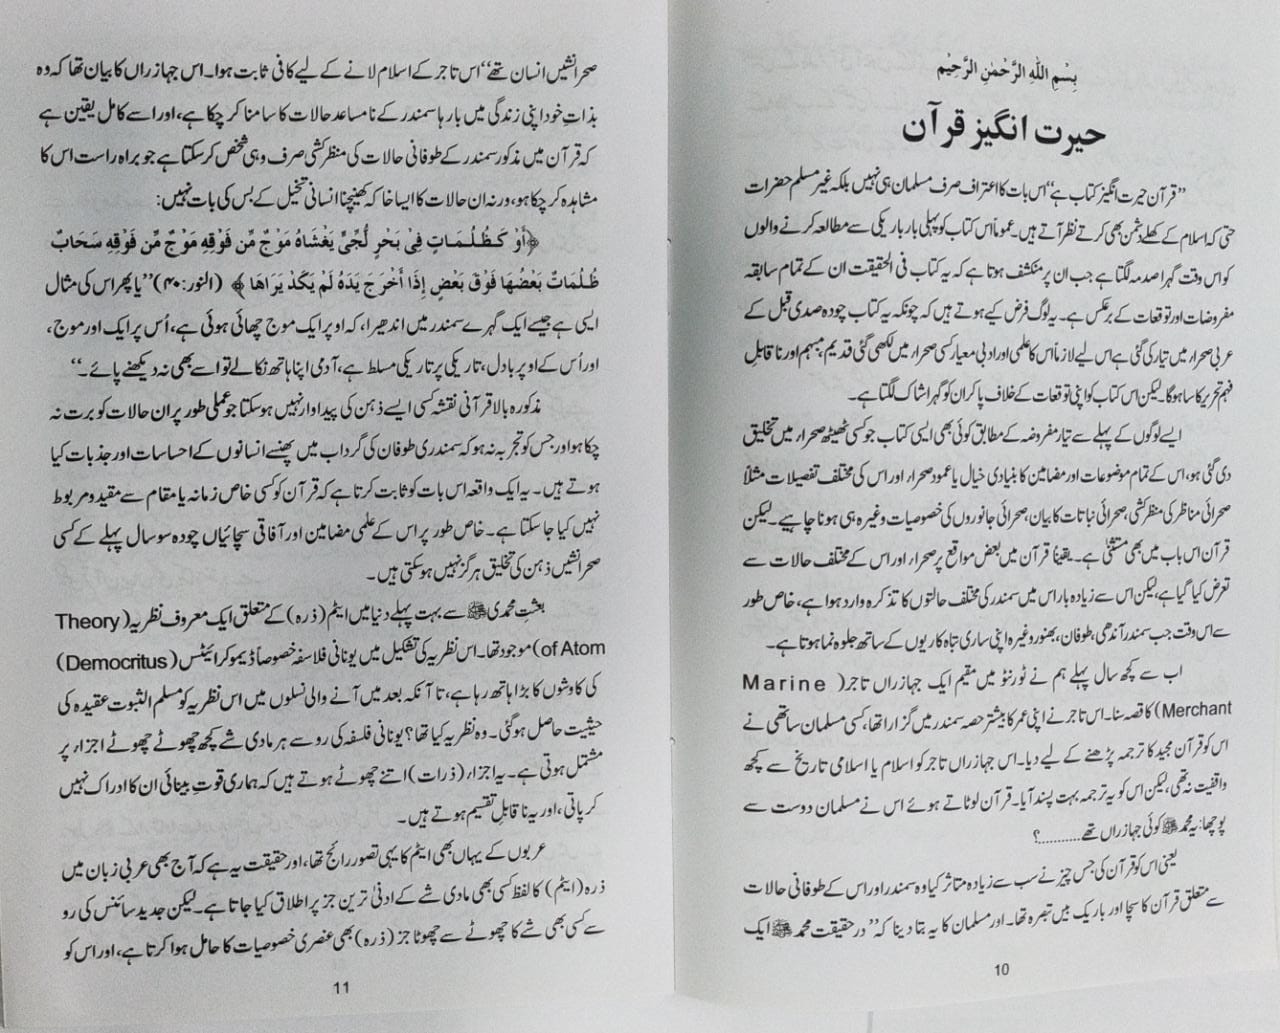 بِسْمِ اللهِ الرَّحْمٰنِ الرَّحِيْمِ
حیرت انگیز قرآن
”قرآن حیرت انگیز کتاب ہے“ اس بات کا اعتراف صرف مسلمان ہی نہیں بلکہ غیر مسلم حضرات
حتی کہ اسلام کے کھلے دشمن بھی کرتے نظر آتے ہیں۔ عموماً اس کتاب کو پہلی بار باریکی سے مطالعہ کرنے والوں
کو اس وقت گہرا صدمہ لگتا ہے جب ان پر منکشف ہوتا ہے کہ یہ کتاب فی الحقیقت ان کے تمام سابقہ
مفروضات اور توقعات کے برعکس ہے۔ یہ لوگ فرض کیے ہوتے ہیں کہ چونکہ یہ کتاب چودہ صدی قبل کے
عربی صحراء میں تیار کی گئی ہے اس لیے لازماً اس کا علمی اور ادبی معیار کسی صحراء میں لکھی گئی قدیم، مبہم اور ناقابلِ
فہم تحریر کا سا ہوگا لیکن اس کتاب کو اپنی توقعات کے خلاف پا کر ان کو گہرا شاک لگتا ہے۔
ایسے لوگوں کے پہلے سے تیار مفروضہ کے مطابق کوئی بھی ایسی کتاب جو کسی ٹھیٹھ صحراء میں تخلیق
دی گئی ہو، اس کے تمام موضوعات اور مضامین کا بنیادی خیال یا عمود صحراء اور اس کی مختلف تفصیلات مثلاً
صحرائی مناظر کی منظر کشی، صحرائی نباتات کا بیان، صحرائی جانوروں کی خصوصیات وغیرہ ہی ہونا چاہیے۔ لیکن
قرآن اس باب میں بھی مستثنیٰ ہے۔ یقیناً قرآن میں بعض مواقع پر صحراء اور اس کے مختلف حالات سے
تعرض کیا گیا ہے، لیکن اس سے زیادہ بار اس میں سمندر کی مختلف حالتوں کا تذکرہ وارد ہوا ہے، خاص طور
سے اس وقت جب سمندر آندھی، طوفان، بھنور وغیرہ اپنی ساری تباہ کاریوں کے ساتھ جلوہ نما ہوتا ہے۔
اب سے کچھ سال پہلے ہم نے ٹورنٹو میں مقیم ایک جہازراں تاجر (Marine
Merchant) کا قصہ سنا۔ اس تاجر نے اپنی عمر کا بیشتر حصہ سمندر میں گزارا تھا، کسی مسلمان ساتھی نے
اس کو قرآن مجید کا ترجمہ پڑھنے کے لیے دیا۔ اس جہازراں تاجر کو اسلام یا اسلامی تاریخ سے کچھ
واقفیت نہ تھی، لیکن اس کو یہ ترجمہ بہت پسند آیا۔ قرآن لوٹاتے ہوئے اس نے مسلمان دوست سے
پوچھا: یہ محمد ﷺ کوئی جہازراں تھے...........؟
یعنی اس کو قرآن کی جس چیز نے سب سے زیادہ متاثر کیا وہ سمندر اور اس کے طوفانی حالات
سے متعلق قرآن کا سچا اور باریک بیں تبصرہ تھا۔ اور مسلمان کا یہ بتا دینا کہ ”درحقیقت محمد ﷺ ایک
10
صحرا نشیں انسان تھے“ اس تاجر کے اسلام لانے کے لیے کافی ثابت ہوا۔ اس جہازراں کا بیان تھا کہ وہ
بذاتِ خود اپنی زندگی میں بارہا سمندر کے نامساعد حالات کا سامنا کر چکا ہے، اور اسے کامل یقین ہے
کہ قرآن میں مذکور سمندر کے طوفانی حالات کی منظر کشی صرف وہی شخص کر سکتا ہے جو براہ راست اس کا
مشاہدہ کر چکا ہو، ورنہ ان حالات کا ایسا خاکہ کھینچنا انسانی تخیل کے بس کی بات نہیں:
﴿أَوْ كَظُلُمَاتٍ فِيْ بَحْرٍ لُّجِّيٍّ يَغْشَاهُ مَوْجٌ مِّن فَوْقِهِ مَوْجٌ مِّن فَوْقِهِ سَحَابٌ
ظُلُمَاتٌ بَعْضُهَا فَوْقَ بَعْضٍ إِذَا أَخْرَجَ يَدَهُ لَمْ يَكَدْ يَرَاهَا﴾ (النور: ۴۰) ”یا پھر اس کی مثال
ایسی ہے جیسے ایک گہرے سمندر میں اندھیرا، کہ اوپر ایک موج چھائی ہوئی ہے، اُس پر ایک اور موج،
اور اُس کے اوپر بادل، تاریکی پر تاریکی مسلط ہے، آدمی اپنا ہاتھ نکالے تو اسے بھی نہ دیکھنے پائے۔“
مذکورہ بالا قرآنی نقشہ کسی ایسے ذہن کی پیداوار نہیں ہوسکتا جو عملی طور پر ان حالات کو برت نہ
چکا ہو اور جس کو تجربہ نہ ہو کہ سمندری طوفان کی گرداب میں پھنسے انسانوں کے احساسات اور جذبات کیا
ہوتے ہیں۔ یہ ایک واقعہ اس بات کو ثابت کرتا ہے کہ قرآن کو کسی خاص زمانہ یا مقام سے مقید و مربوط
نہیں کیا جا سکتا ہے۔ خاص طور پر اس کے علمی مضامین اور آفاقی سچائیاں چودہ سو سال پہلے کے کسی
صحرا نشیں ذہن کی تخلیق ہرگز نہیں ہو سکتی ہیں۔
بعثتِ محمدی ﷺ سے بہت پہلے دنیا میں ایٹم (ذرہ) کے متعلق ایک معروف نظریہ (Theory
of Atom) موجود تھا۔ اس نظریہ کی تشکیل میں یونانی فلاسفہ خصوصاً ڈیموکرائیٹس (Democritus)
کی کاوشوں کا بڑا ہاتھ رہا ہے، تا آنکہ بعد میں آنے والی نسلوں میں اس نظریہ کو مسلم الثبوت عقیدہ کی
حیثیت حاصل ہو گئی۔ وہ نظریہ کیا تھا؟ یونانی فلسفہ کی رو سے ہر مادی شے کچھ چھوٹے چھوٹے اجزاء پر
مشتمل ہوتی ہے۔ یہ اجزاء (ذرات) اتنے چھوٹے ہوتے ہیں کہ ہماری قوتِ بینائی ان کا ادراک نہیں
کر پاتی، اور یہ ناقابلِ تقسیم ہوتے ہیں۔
عربوں کے یہاں بھی ایٹم کا یہی تصور رائج تھا، اور حقیقت یہ ہے کہ آج بھی عربی زبان میں
ذرہ (ایٹم) کا لفظ کسی بھی مادی شے کے ادنیٰ ترین جز پر اطلاق کیا جاتا ہے۔ لیکن جدید سائنس کی رو
سے کسی بھی شے کا چھوٹے سے چھوٹا جز (ذرہ) بھی عنصری خصوصیات کا حامل ہوا کرتا ہے، اور اس کو
11